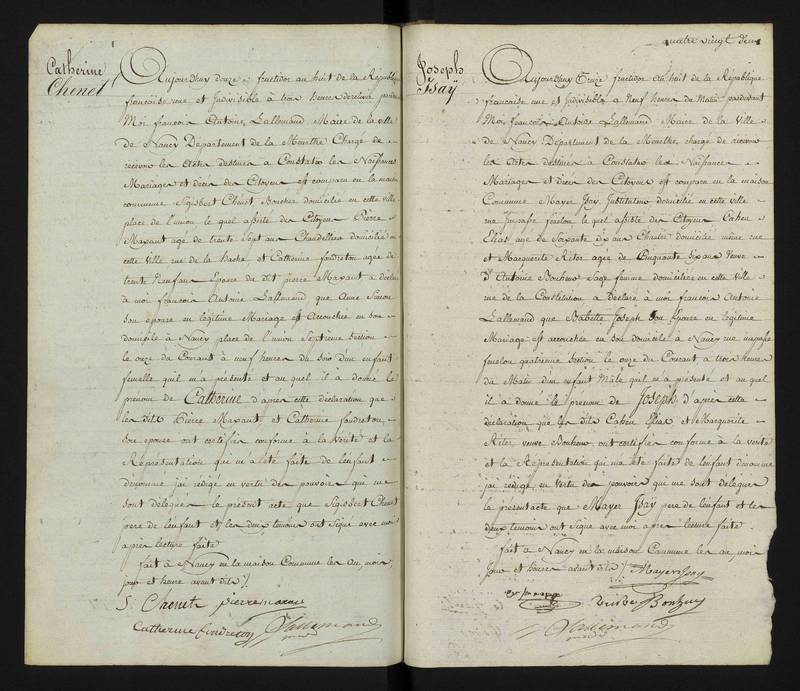 Catherine
Chenet
Aujourdhuy douze fructidor an huit de la République
francaise une et Indivisible à trois heures de relevée pardevant
Moi francois Antoine Lallemand Maire de la ville
de Nancy Departement de la Meurthe Chargé de
recevoir les Actes destinés a Constater les Naissances
Mariages et décès des Citoyens est comparu en la maison
commune Sigisbert Chenet Boucher domicilié en cette ville
place de l'union le quel assisté des Citoyens Pierre
Maxant agé de trente Sept ans Chandellier domicilié en
cette ville rue de la hache et Catherine foudreton agée de
trente Neuf ans Epouse du dit pierre Maxant a déclaré
à moi francois Antoine Lallemand que Anne
son épouse en légitime Mariage est Accouchée en son
domicile à Nancy place de l'union Septieme Section
le onze du Courant à neuf heures du soir d'un enfant
femelle qu'il m'a présenté et au quel il à donné le
prenom de Catherine d'après cette déclaration que
les dits Pierre Maxant et Catherine foudreton,
son epouse ont certifiés conforme à la Vérité et la
Représentation qui m'a été faite de l'enfant
denommé jai rédigé en vertu des pouvoirs qui me
sont délégués le présent acte que Sigisbert Chenet
pere de l'enfant et les deux temoins ont Signé avec moi
après lecture faite
fait à Nancy en la maison Commune les an, mois,
jour et heure avant dits /.
S Chenet pierre maxant
Catherine foudreton Lallemand
maire
quatre vingt deux
Joseph
Isaÿ
Aujourdhuy Treize fructidor an huit de la République
francaise une et Indivisible a Neuf heures du Matin pardevant
Moi francois Antoine Lallemand Maire de la Ville
de Nancy Departement de la Meurthe, chargé de recevoir
les Actes destinés à Constater les Naissances
Mariages et décès des Citoyens est comparu en la maison
Commune Mayer Isay, Instituteur domicilié en cette ville
rue fenelon le quel assisté des Citoyens Cahen
Elias agé de Soixante dix ans Chantre domicilié même rue
et Marguerite Riter agée de Cinquante dix ans Veuve
d'Antoine Bonheur Sage femme domiciliée en cette Ville
rue de la Constitution a déclaré à moi francois Antoine
Lallemand que Babette Joseph Son Epouse en légitime
Mariage est accouchée en son domicile à Nancy rue
fenelon quatrieme Section le onze du Courant a trois heures
du Matin d'un enfant Mâle qu'il m'a présenté et au quel
il a donné le prenom de Joseph, d'après cette
déclaration que les dits Cahen Elias et Marguerite
Riter, veuve Bonheur, ont certifiés conforme à la verité
et la Représentation qui m'a été faite de l'enfant denommé
jai rédigé, en vertu des pouvoirs qui me sont délégués
le présent acte que Mayer Isaÿ pere de l'enfant et les
deux temoins ont Signé avec moi après lecture faite
fait à Nancy en la maison Commune les an, mois
jour et heure avant dits /. Mayer Isay
Bonheur
Lallemand
maire